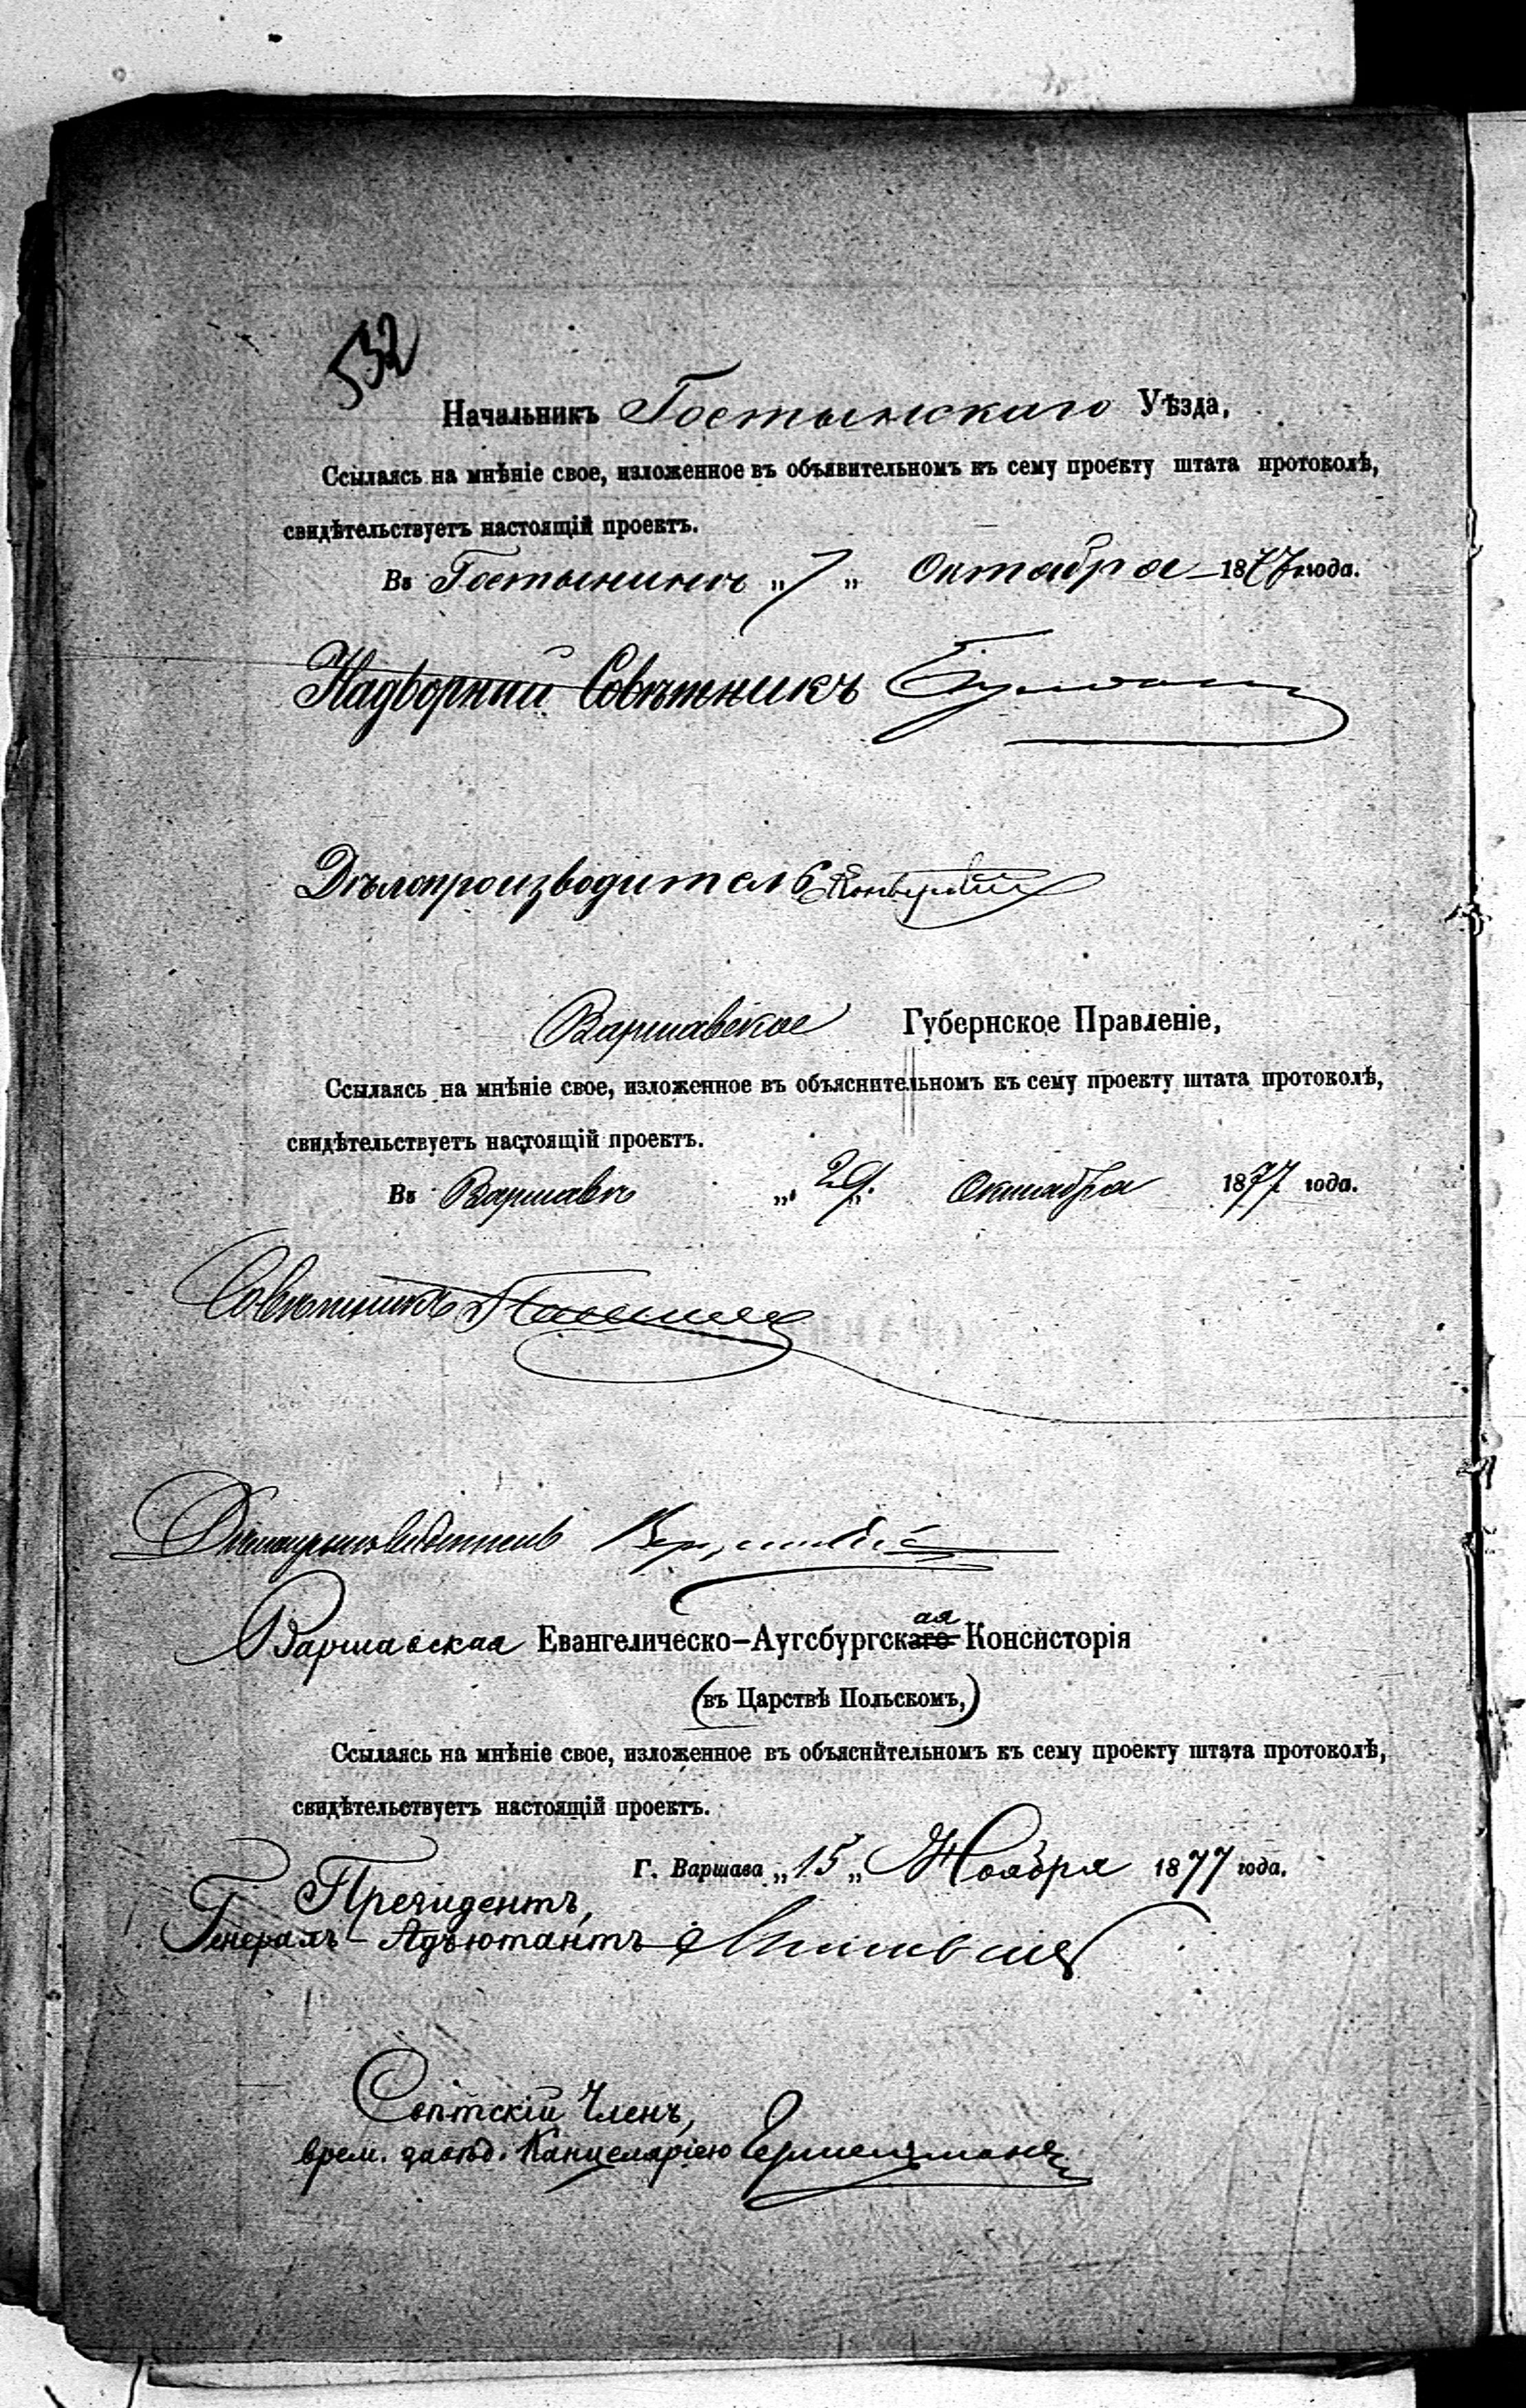 532
Начальникъ Гостынскаго Уѣзда,
Ссылаясь на мнѣніе свое, изложенное въ объявительномъ къ сему проекту штата протоколѣ,
свидѣтельствуетъ настоящій проектъ.
Въ Гостынинѣ „7„ Октября 1877 года.
Надворный Совѣтникъ
Дѣлопроизводитель
Варшавское Губернское Правленіе,
Ссылаясь на мнѣніе свое, изложенное въ объяснительномъ къ сему проекту штата протоколѣ,
свидѣтельствуетъ настоящій проектъ.
Въ Варшавѣ „29„ Октября 1877 года.
Совѣтникъ
Дѣлопроизводитель
Варшавская Евангелическо-Аугсбургская Консисторія
(въ Царствѣ Польскомъ,)
Ссылаясь на мнѣніе свое, изложенное въ объяснительномъ къ сему проекту штата протоколѣ,
свидѣтельствуетъ настоящій проектъ.
Г. Варшава „15„ Ноября 1877 года.
Президентъ,
Генералъ-Адъютантъ
Свѣтскій Членъ,
врем. завѣд. Канцеляріею